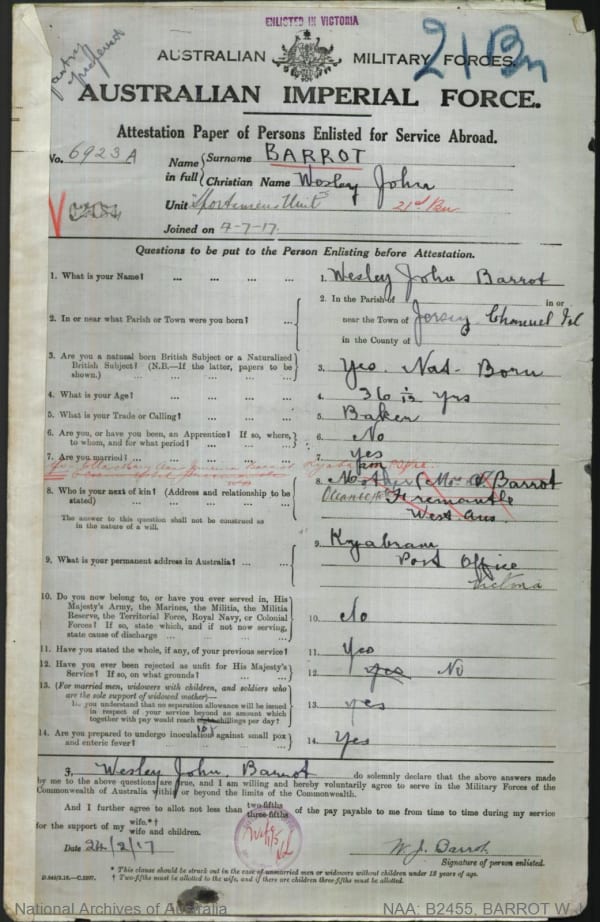 ENLISTED IN VICTORIA
AUSTRALIAN MILITARY FORCES.
21 Bn
AUSTRALIAN IMPERIAL FORCE.
Attestation Paper of Persons Enlisted for Service Abroad.
No. 6923A
Name in full { Surname BARROT
Christian Name Wesley John
Unit "Sportsmens Unit" 21st Bn
Joined on 4-7-17.
Questions to be put to the Person Enlisting before Attestation.
1. What is your Name? ... ... ... ... 1. Wesley John Barrot
2. In or near what Parish or Town were you born? ... 2. In the Parish of in or
near the Town of Jersey Channel Isl
in the County of
3. Are you a natural born British Subject or a Naturalized
British Subject? (N.B.—If the latter, papers to be
shown.) ... ... ... 3. Yes. Nat- Born
4. What is your Age? ... ... ... ... 4. 36 1/12 Yrs
5. What is your Trade or Calling? ... ... ... 5. Baker
6. Are you, or have you been, an Apprentice? If so, where,
to whom, and for what period? ... ... ... 6. No
7. Are you married? ... ... ... ... 7. Yes
8. Who is your next of kin? (Address and relationship to be
stated) ... ... ... 8. Mother Mrs Barrot
Fremantle
West Aus.
The answer to this question shall not be construed as
in the nature of a will.
9. What is your permanent address in Australia? ... 9. Kyabram
Post Office
Victoria
10. Do you now belong to, or have you ever served in, His
Majesty's Army, the Marines, the Militia, the Militia
Reserve, the Territorial Force, Royal Navy, or Colonial
Forces? If so, state which, and if not now serving,
state cause of discharge ... ... ... 10. No
11. Have you stated the whole, if any, of your previous service? 11. Yes
12. Have you ever been rejected as unfit for His Majesty's
Service? If so, on what grounds? ... ... 12. yes No
13. (For married men, widowers with children, and soldiers who
are the sole support of widowed mother)—
Do you understand that no separation allowance will be issued
in respect of your service beyond an amount which
together with pay would reach shillings per day? 13. yes
10/-
14. Are you prepared to undergo inoculation against small pox
and enteric fever? ... ... ... 14. Yes
I, Wesley John Barrot do solemnly declare that the above answers made
by me to the above questions are true, and I am willing and hereby voluntarily agree to serve in the Military Forces of the
Commonwealth of Australia within or beyond the limits of the Commonwealth.
And I further agree to allot not less than two-fifths three-fifths of the pay payable to me from time to time during my service
for the support of my wife.*†
wife and children.
Wife
Date 24/2/17
W. J. Barrot
Signature of person enlisted.
* This clause should be struck out in the case of unmarried men or widowers without children under 18 years of age.
† Two-fifths must be allotted to the wife, and if there are children three-fifths must be allotted.
National Archives of Australia
NAA: B2455, BARROT W J